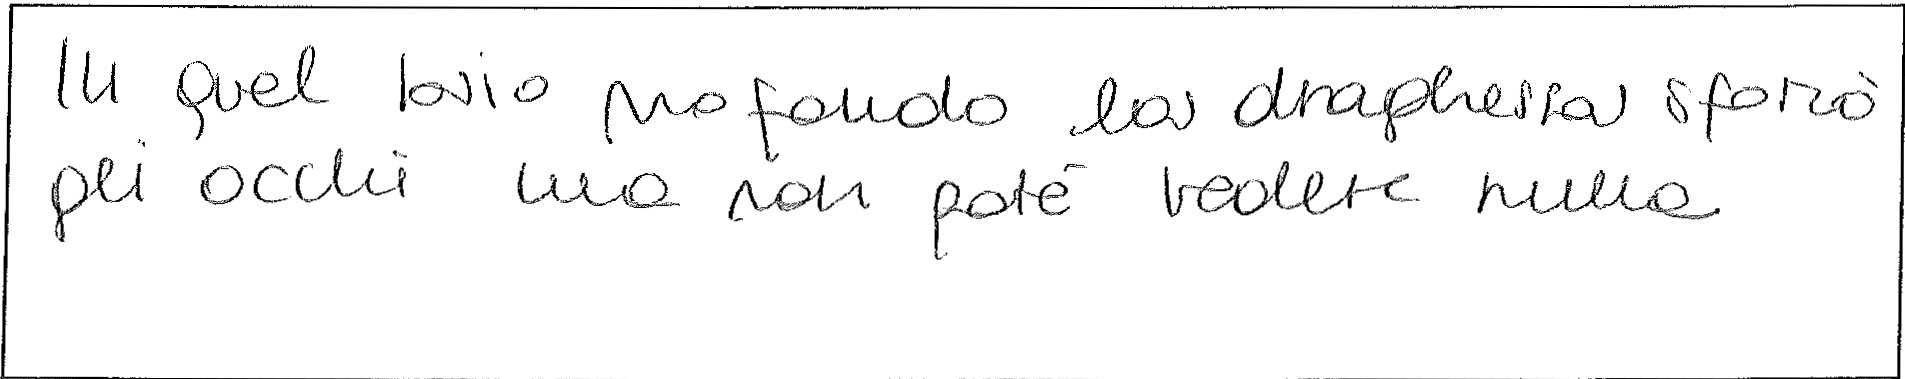 In quel bosio profondo la draghessa sforzò
gli occhi ma non poté vedere nulla